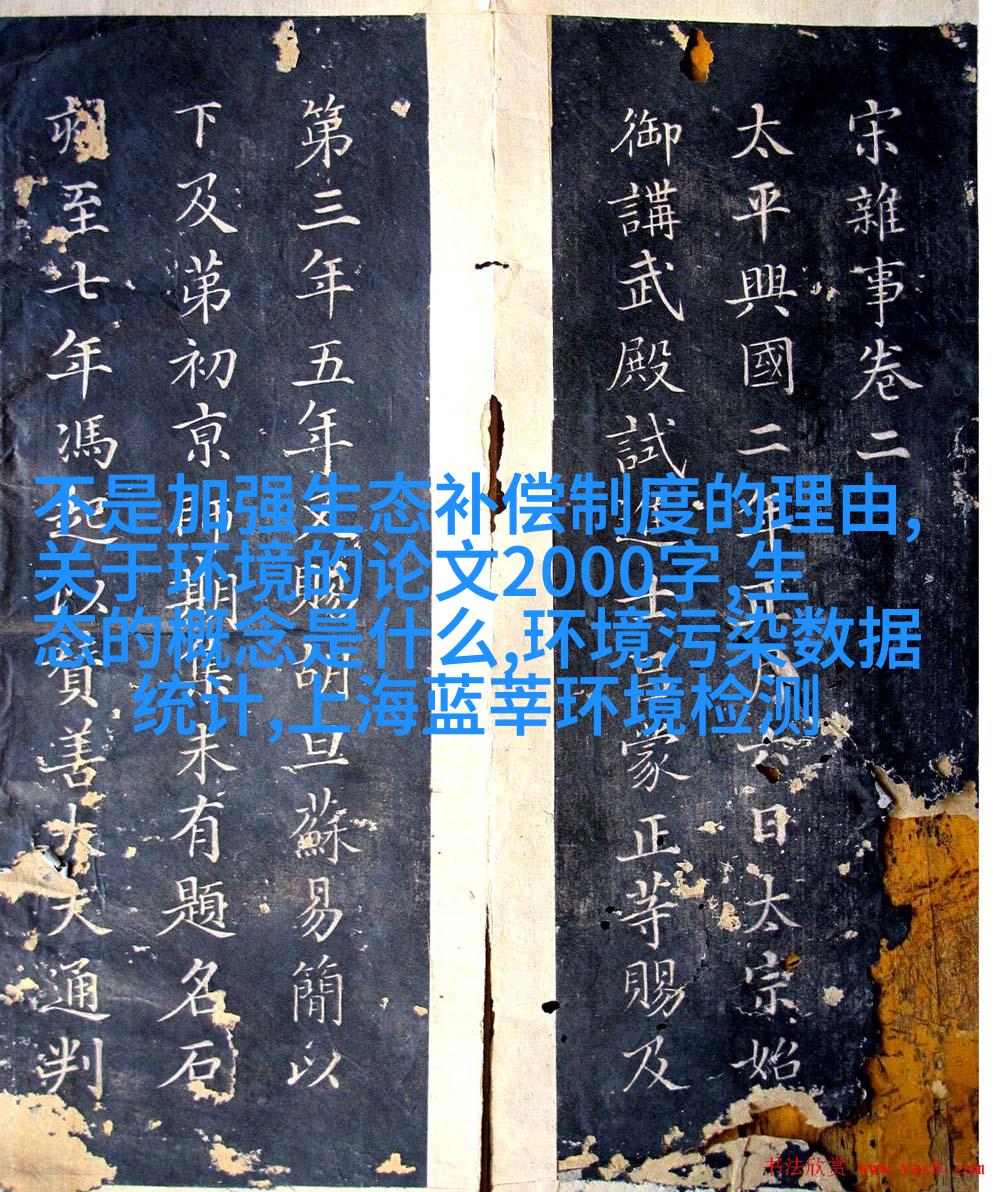 宋雜事卷二
太平興國二年正月六日太宗始
御講武殿試進士呂蒙正等賜及
第三年五年又賜胡旦蘇易簡以
下及苐初亰師期集未有題名石
至七年馮起以善大夫通判
不是加强生态补偿制度的理由,
关于环境的论文2000字,生
态的概念是什么,环境污染数据
统计,上海蓝莘环境检测
书法欣赏 www.yac8.com